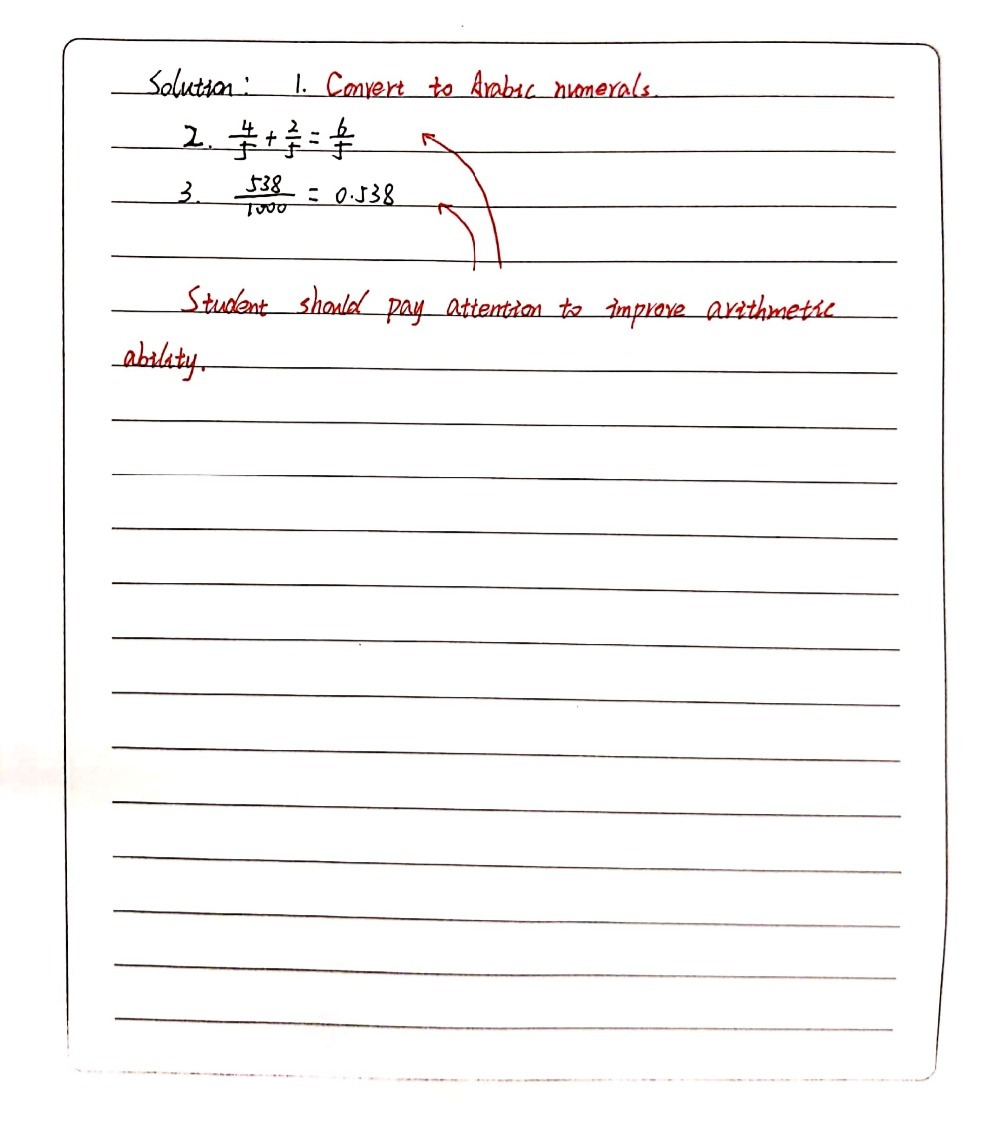 Solution: 1. Convert to Arabic numerals.
2. 4/5 + 2/5 = 6/5
3. 538/1000 = 0.538
Student should pay attention to improve arithmetic
ability.